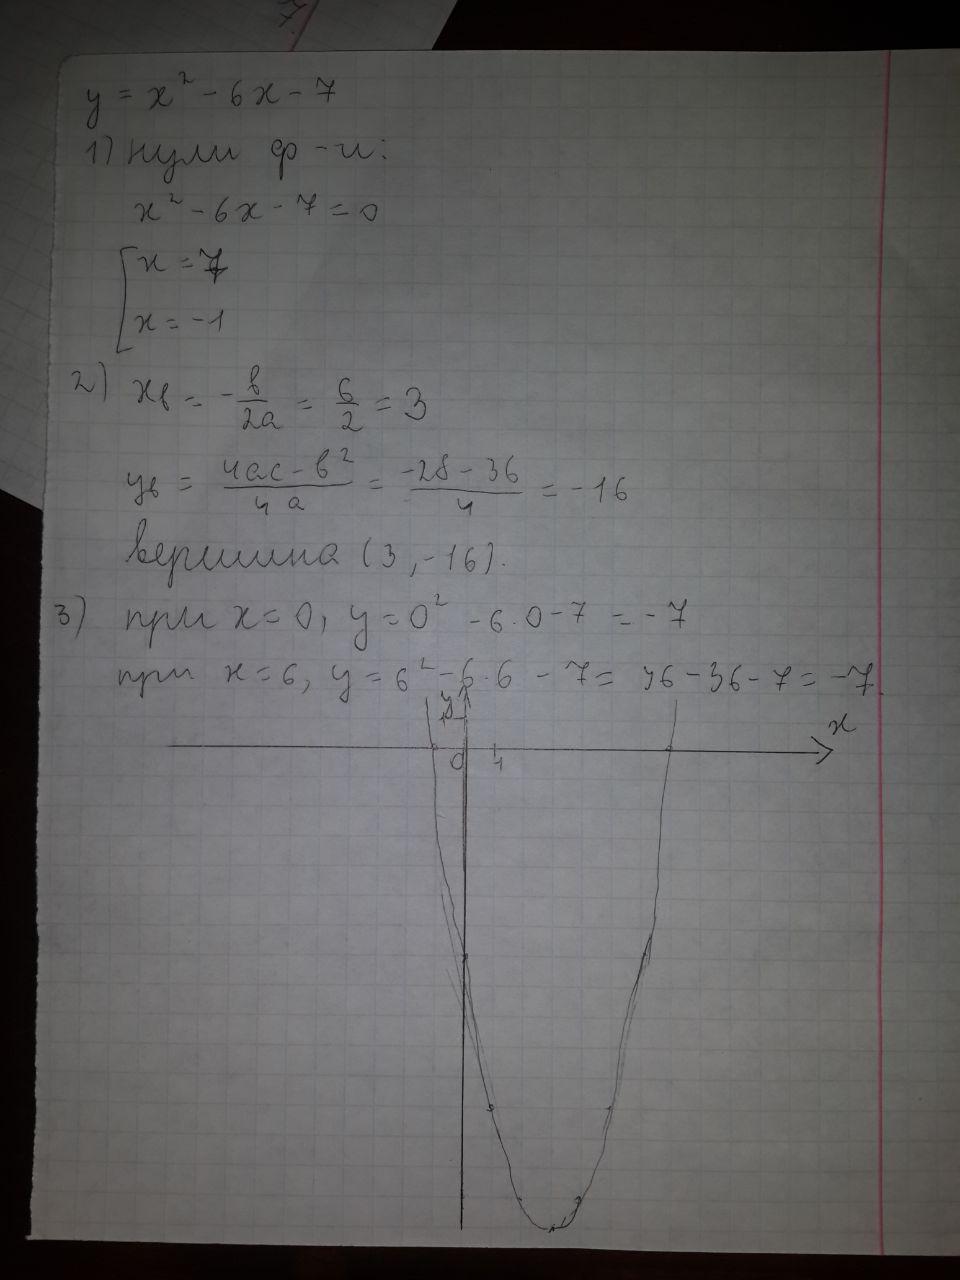 7
y = x² - 6x - 7
1) нули ф-и:
x² - 6x - 7 = 0
[ x = 7
x = -1
2) xв = -в/2a = 6/2 = 3
yв = (4ac - в²)/(4a) = (-28 - 36)/4 = -16
вершина (3, -16).
3) при x = 0, y = 0² - 6·0 - 7 = -7
при x = 6, y = 6² - 6·6 - 7 = 36 - 36 - 7 = -7
y
1
x
0 1